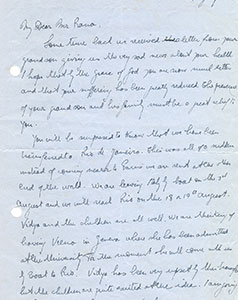 My Dear Mrs Rana.
Some time back we received letter from your
grandson giving us the very sad news about your health
I hope that by the grace of God you are now much better
and that your suffering has been greatly reduced. The presence
of your grandson and his family must be a great relief to
you.
You will be surprised to know that we have been
transferred to Rio de Janeiro. This was all of a sudden
instead of coming nearer to Paris we are sent to the other
end of the world. We are leaving by boat on the 3rd
August and we will reach Rio on the 18 or 19th August.
Vidya and the children are all well. We are thinking of
leaving Veena in Geneva where she has been admitted
at the University. For the moment she will come with us
by boat to Rio. Vidya has been very upset by this transfer
but the children are quite excited at the idea. I am